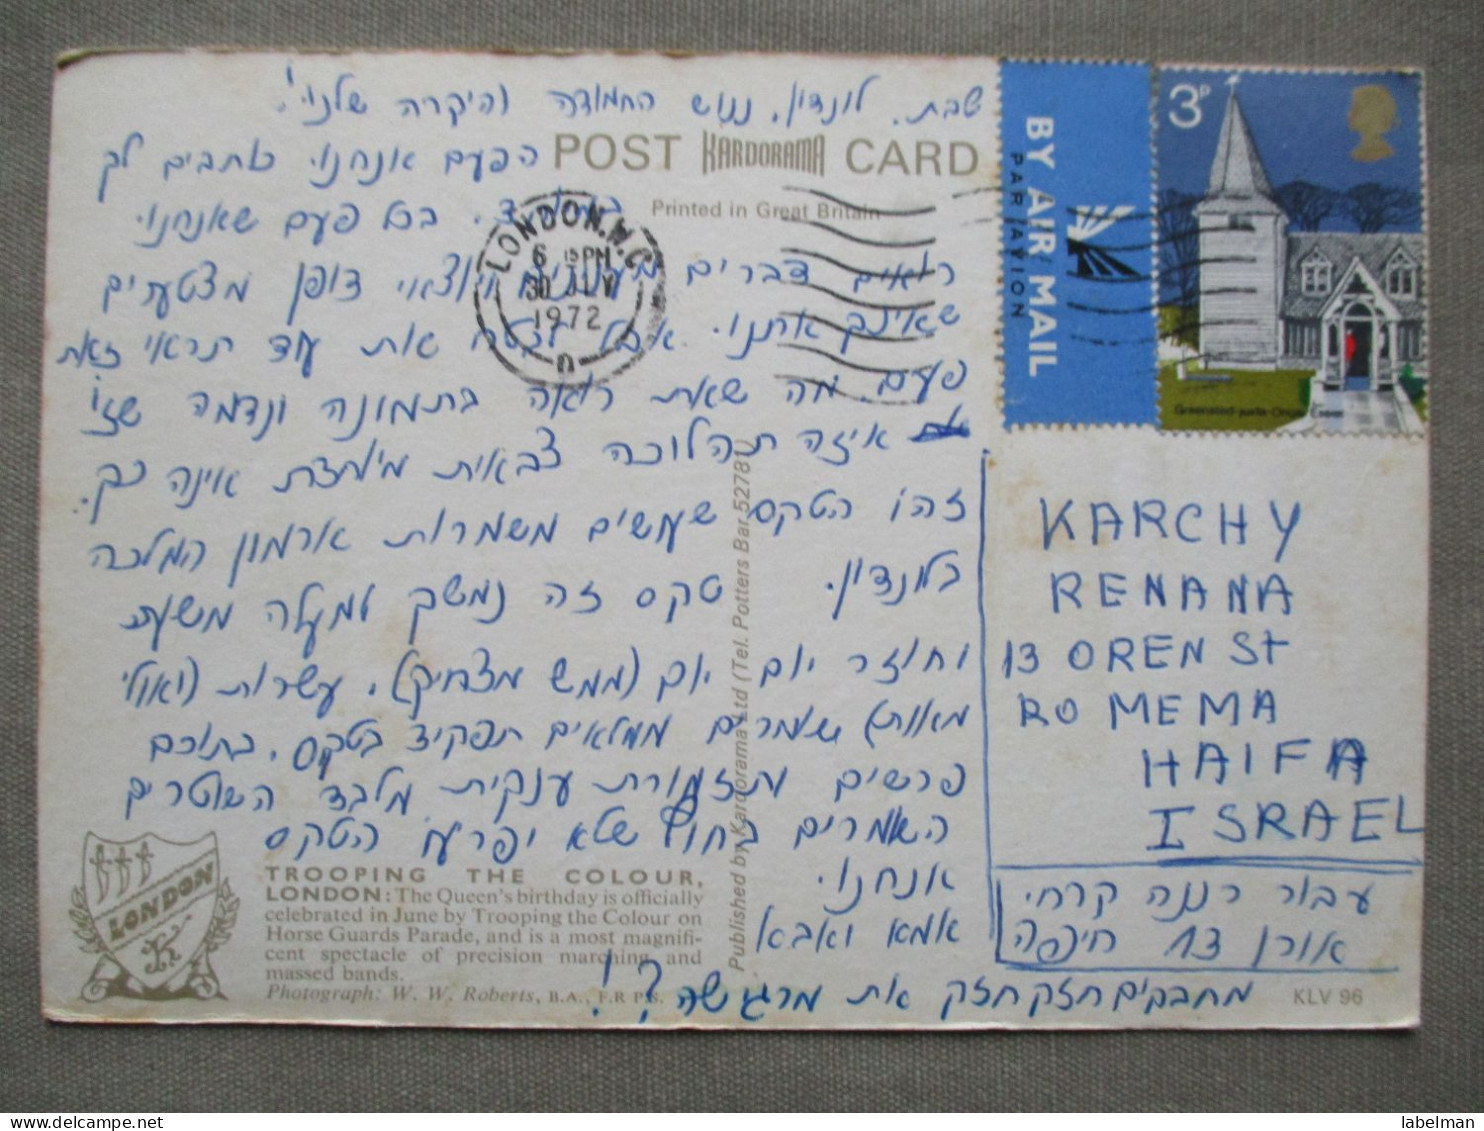 שבת. לונדון. ננוש החמודה והיקרה שלנו!
POST KARDORAMA CARD
Printed in Great Britain
הפעם אנחנו כותבים לך
בכל פעם שאנחנו
רואים דברים יוצאי דופן מצטערים
שאינך אתנו. אבל לבטח את עוד תראי זאת
פעם. מה שאת רואה בתמונה ונדמה שזו
איזה תהלוכה צבאית מיוחדת אינה כך.
זהו הטקס שעושים משמרות ארמון המלכה
בלונדון. טקס זה נמשך למעלה משעה
וחוזר יום יום (ממש מצחיק). עשרות (ואולי
מאות) שומרים ממלאים תפקיד בטקס, בתוכם
פרשים ותזמורת ענקית מלבד השוטרים
השומרים בחוץ שלא יפריעו הטקס
אנחנו.
אמא ואבא
מחבקים חזק חזק את מרגישה?!
LONDON. W.C.
6 15 PM
30 JLY
1972
BY AIR MAIL
PAR AVION
3P
Greensted-juxta-Ongar, Essex
KARCHY
RENANA
13 OREN St
ROMEMA
HAIFA
ISRAEL
עבור רננה קרחי.
אורן 13 חיפה
LONDON
TROOPING THE COLOUR,
LONDON: The Queen's birthday is officially
celebrated in June by Trooping the Colour on
Horse Guards Parade, and is a most magnifi-
cent spectacle of precision marching and
massed bands.
Photograph: W. W. Roberts, B.A., F.R.P.S.
Published by Kardorama Ltd (Tel. Potters Bar 52781)
KLV 96
labelman